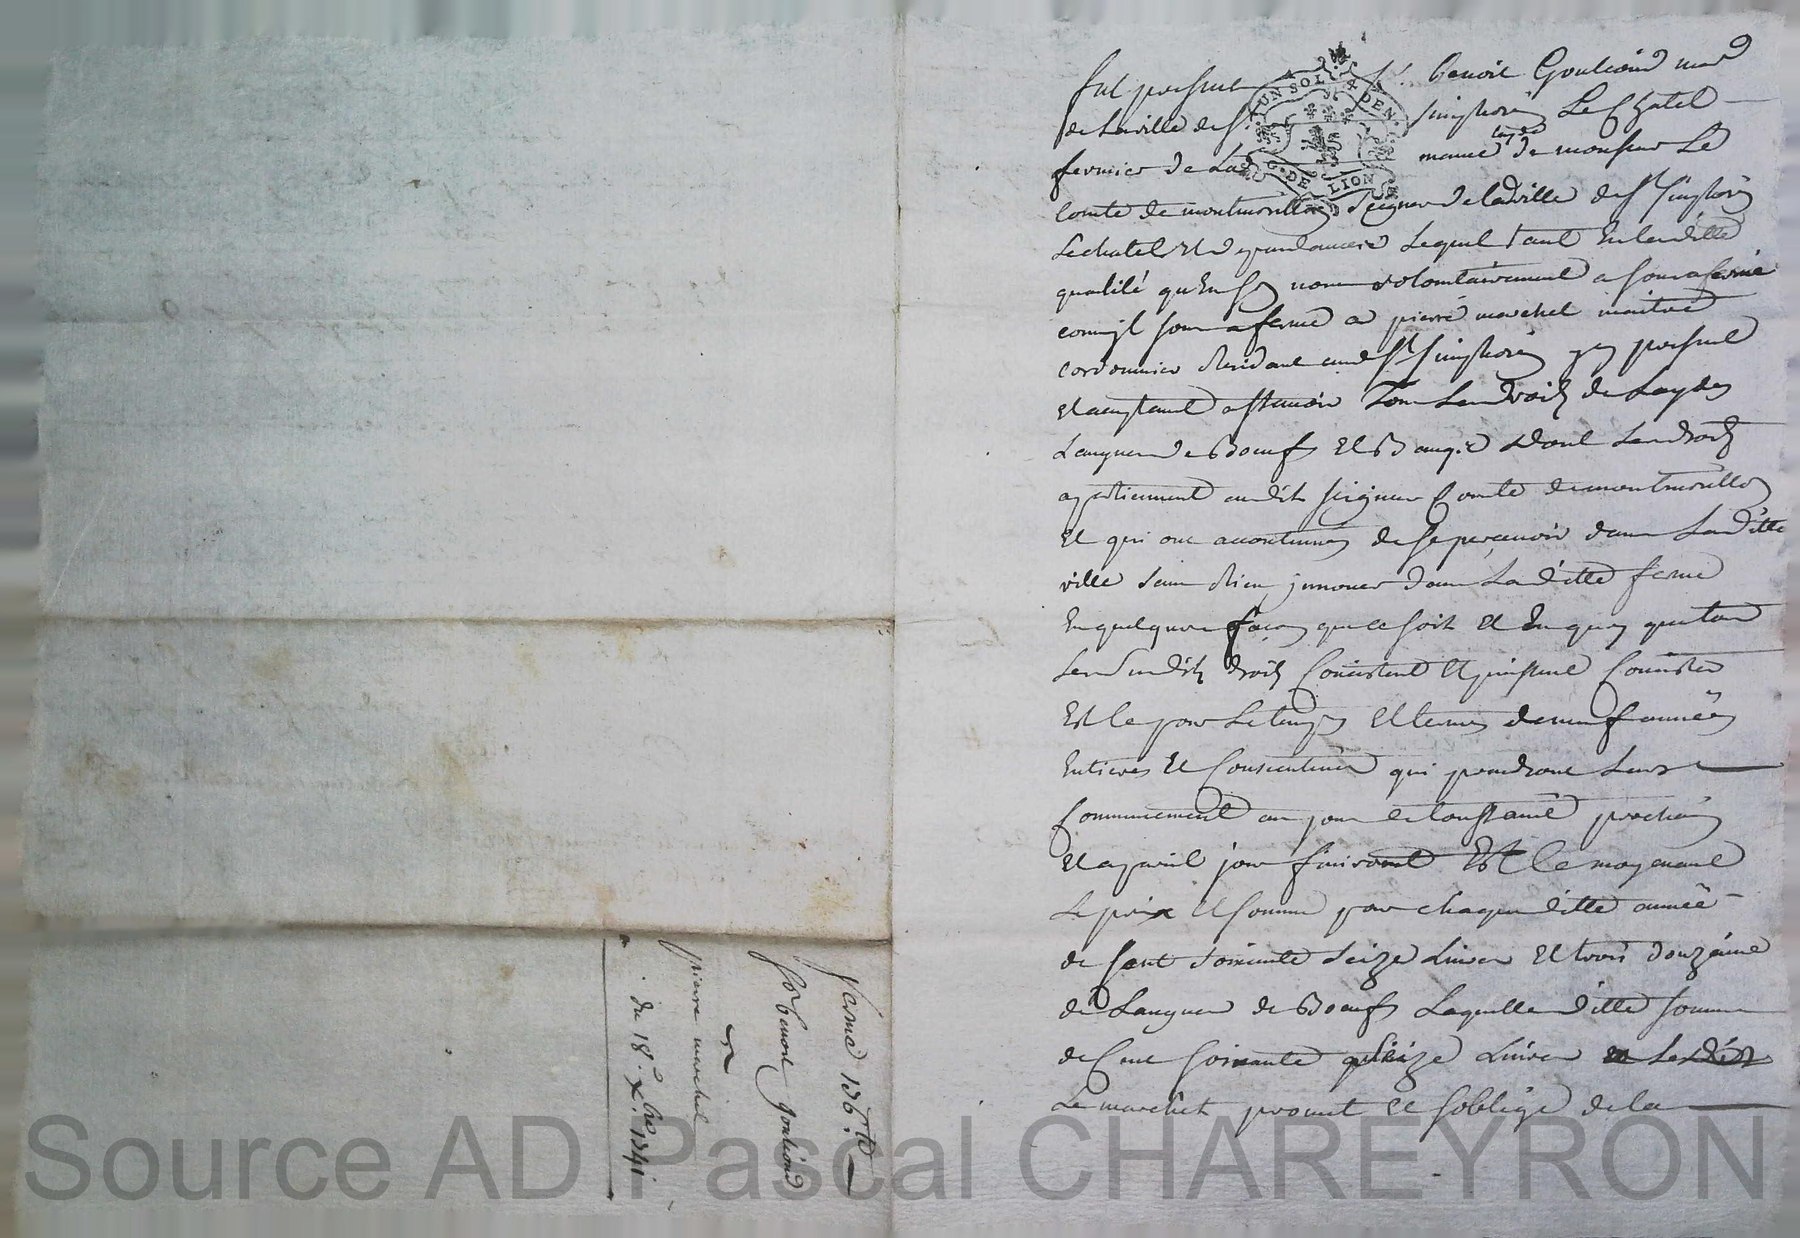 fut present Sr. benoit Goulioud mard
de la ville de St. Simphorin Le Chatel
fermier de La terre de monsieur Le
Comte de montmorillon Seigneur de la ditte ville de St Simphorin
Lechatel et dependances Lequel tant En la ditte
qualité qu'En son nom volontairement a sousafermé
comm'jl sousaferme a pierre marchel maitre
cordonnier Residant aud St Simphorin jcy present
et acceptant assavoir Tous Les droits de Leydes
Langues de Boeufs et Bancs dont Les droits
apartiennent audit seigneur Comte de montmorillon
Et qui ont accoutumés de se percevoir dans Laditte
ville sans Rien jnnover dans La ditte ferme
En quelques façon que ce soit Et En quoy que tous
Les susdits droits Consistent Et puissent Consister
Est ce pour Le temps Et terme de neuf années
Entieres Et Consecutives qui prendront Leurs
Commencement au jour de Toussaint prochain
Et a pareil jour finiront Et ce moyenant
Le prix Et somme pour chaque ditte année
de sent soixante seize Livres Et trois douzaine
de Langues de Boeufs Laquelle ditte somme
de Cent soixante seize Livres
Le marchel promet Et soblige de la
ferme
Sr. benoit goulioud
a
pierre marchel
du 18e. Xbre. 1741
UN SOL 4 DEN.
G. DE LION
Source AD Pascal CHAREYRON